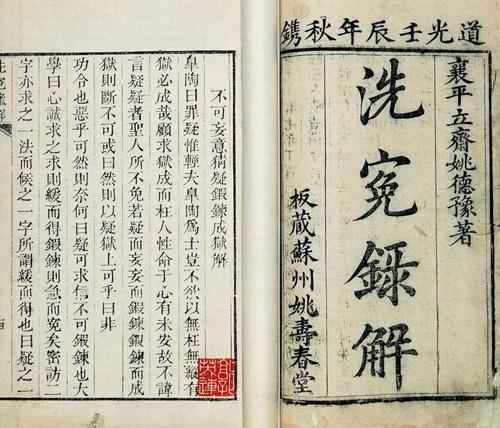 道光壬辰年秋鐫
襄平立齋姚德豫著
洗寃錄解
板藏蘇州姚壽春堂
不可妄意猜疑鍜鍊成獄解
皋陶曰罪疑惟輕夫皋陶爲士豈不欲以無枉無縱有
獄必成哉顧求獄成而枉人性命于心有未安故不諱
言疑疑者聖人所不免若疑而妄妄而鍜鍊鍜鍊而成
獄則斷不可或曰然則以疑獄上可乎曰非
功令也惡乎可然則奈何曰疑可求信不可鍜鍊也大
學曰心誠求之求則緩而得鍜鍊則急而寃矣密訪二
字亦求之一法而候之一字所謂緩而得也曰疑之一